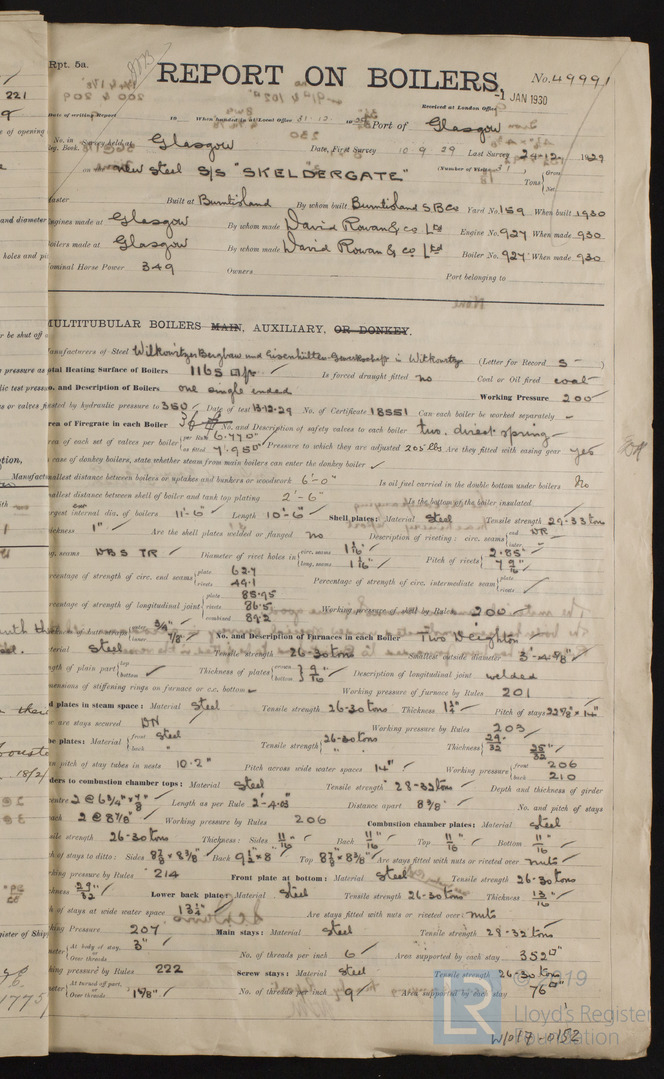 Rpt. 5a.
REPORT ON BOILERS.
No. 49991
Received at London Office
-1 JAN 1930
Date of writing Report 19 When handed in at Local Office 31.12.19 Port of Glasgow
No. in Survey held at Glasgow Date, First Survey 10.9.29 Last Survey 24.12.1929
Reg. Book.
on the New Steel S/S "SKELDERGATE" (Number of Visits
Gross
Tons
Net
Master Built at Burntisland By whom built Burntisland S.B. Co Yard No. 159 When built 1930
Engines made at Glasgow By whom made David Rowan & Co Ltd Engine No. 927 When made 930
Boilers made at Glasgow By whom made David Rowan & Co Ltd Boiler No. 927 When made 930
Nominal Horse Power 349 Owners Port belonging to
MULTITUBULAR BOILERS MAIN, AUXILIARY, OR DONKEY.
Manufacturers of Steel Witkowitzer Bergbau und Eisenhütten-Gewerkschaft in Witkowitz (Letter for Record S)
Total Heating Surface of Boilers 1165 Is forced draught fitted no Coal or Oil fired coal
No. and Description of Boilers one single ended Working Pressure 200
Tested by hydraulic pressure to 350 Date of test 13.12.29 No. of Certificate 18551 Can each boiler be worked separately -
Area of Firegrate in each Boiler 36 No. and Description of safety valves to each boiler two. direct spring
Area of each set of valves per boiler per Rule 6.770" as fitted 7.950" Pressure to which they are adjusted 205 lbs Are they fitted with easing gear yes
In case of donkey boilers, state whether steam from main boilers can enter the donkey boiler
Smallest distance between boilers or uptakes and bunkers or woodwork 6'-0" Is oil fuel carried in the double bottom under boilers No
Smallest distance between shell of boiler and tank top plating 2'-6" Is the bottom of the boiler insulated
Largest internal dia. of boilers 11'-6" Length 10'-6" Shell plates: Material Steel Tensile strength 29-33 tons
Thickness 1" Are the shell plates welded or flanged no Description of riveting: circ. seams end DR inter.
long. seams DBS TR Diameter of rivet holes in circ. seams 1 1/16" long. seams 1 1/16" Pitch of rivets 2.85" 7 9/16"
Percentage of strength of circ. end seams plate 62.7 rivets 49.1 Percentage of strength of circ. intermediate seam plate rivets
Percentage of strength of longitudinal joint plate 85.95 rivets 86.5 combined 89.2 Working pressure of shell by Rules 200
No. and Description of Furnaces in each Boiler Two Deighton
Material Steel Tensile strength 26-30 tons Smallest outside diameter 3'-4 5/8"
Length of plain part top bottom Thickness of plates crown bottom 9/16" Description of longitudinal joint welded
Dimensions of stiffening rings on furnace or c.c. bottom Working pressure of furnace by Rules 201
End plates in steam space: Material Steel Tensile strength 26-30 tons Thickness Pitch of stays 22 7/8" x 14"
How are stays secured DN Working pressure by Rules 203
Tube plates: Material front Steel back " Tensile strength 26-30 tons " " Thickness 29/32 25/32"
Mean pitch of stay tubes in nests 10.2" Pitch across wide water spaces 14" Working pressure front 206 back 210
Girders to combustion chamber tops: Material Steel Tensile strength 28-32 tons Depth and thickness of girder
at centre 2 @ 6 3/4" x 7/8" Length as per Rule 2'-4.03" Distance apart 8 3/8" No. and pitch of stays
in each 2 @ 8 7/8" Working pressure by Rules 206 Combustion chamber plates: Material Steel
Tensile strength 26-30 tons Thickness: Sides 11/16" Back 11/16" Top 11/16" Bottom 11/16"
Pitch of stays to ditto: Sides 8 7/8" x 8 3/8" Back 9 1/2" x 8" Top 8 7/8" x 8 3/8" Are stays fitted with nuts or riveted over nuts
Working pressure by Rules 214 Front plate at bottom: Material Steel Tensile strength 26-30 tons
Thickness 29/32" Lower back plate: Material Steel Tensile strength 26-30 tons Thickness 13/16"
Pitch of stays at wide water space 13 3/4" Are stays fitted with nuts or riveted over nuts
Working Pressure 207 Main stays: Material Steel Tensile strength 28-32 tons
Diameter At body of stay, or Over threads 3" No. of threads per inch 6 Area supported by each stay 352"
Working pressure by Rules 222 Screw stays: Material Steel Tensile strength 26-30 tons
Diameter At turned off part, or Over threads 1 5/8" No. of threads per inch 9 Area supported by each stay 76"
© 2019
LR
Lloyd's Register
Foundation
W1017-0152